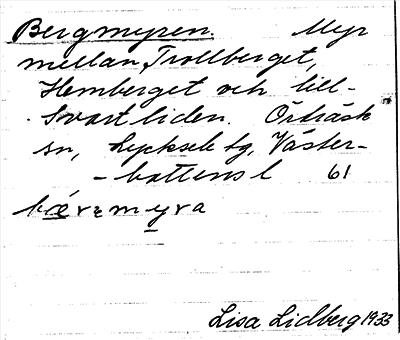 Bergmyren. Myr
mellan Trollberget,
Hemberget och lill-
Svartliden. Örträsk
sn, Lycksele tg, Väster-
-bottens l 61
bærmyra
Lisa Lidberg 1933